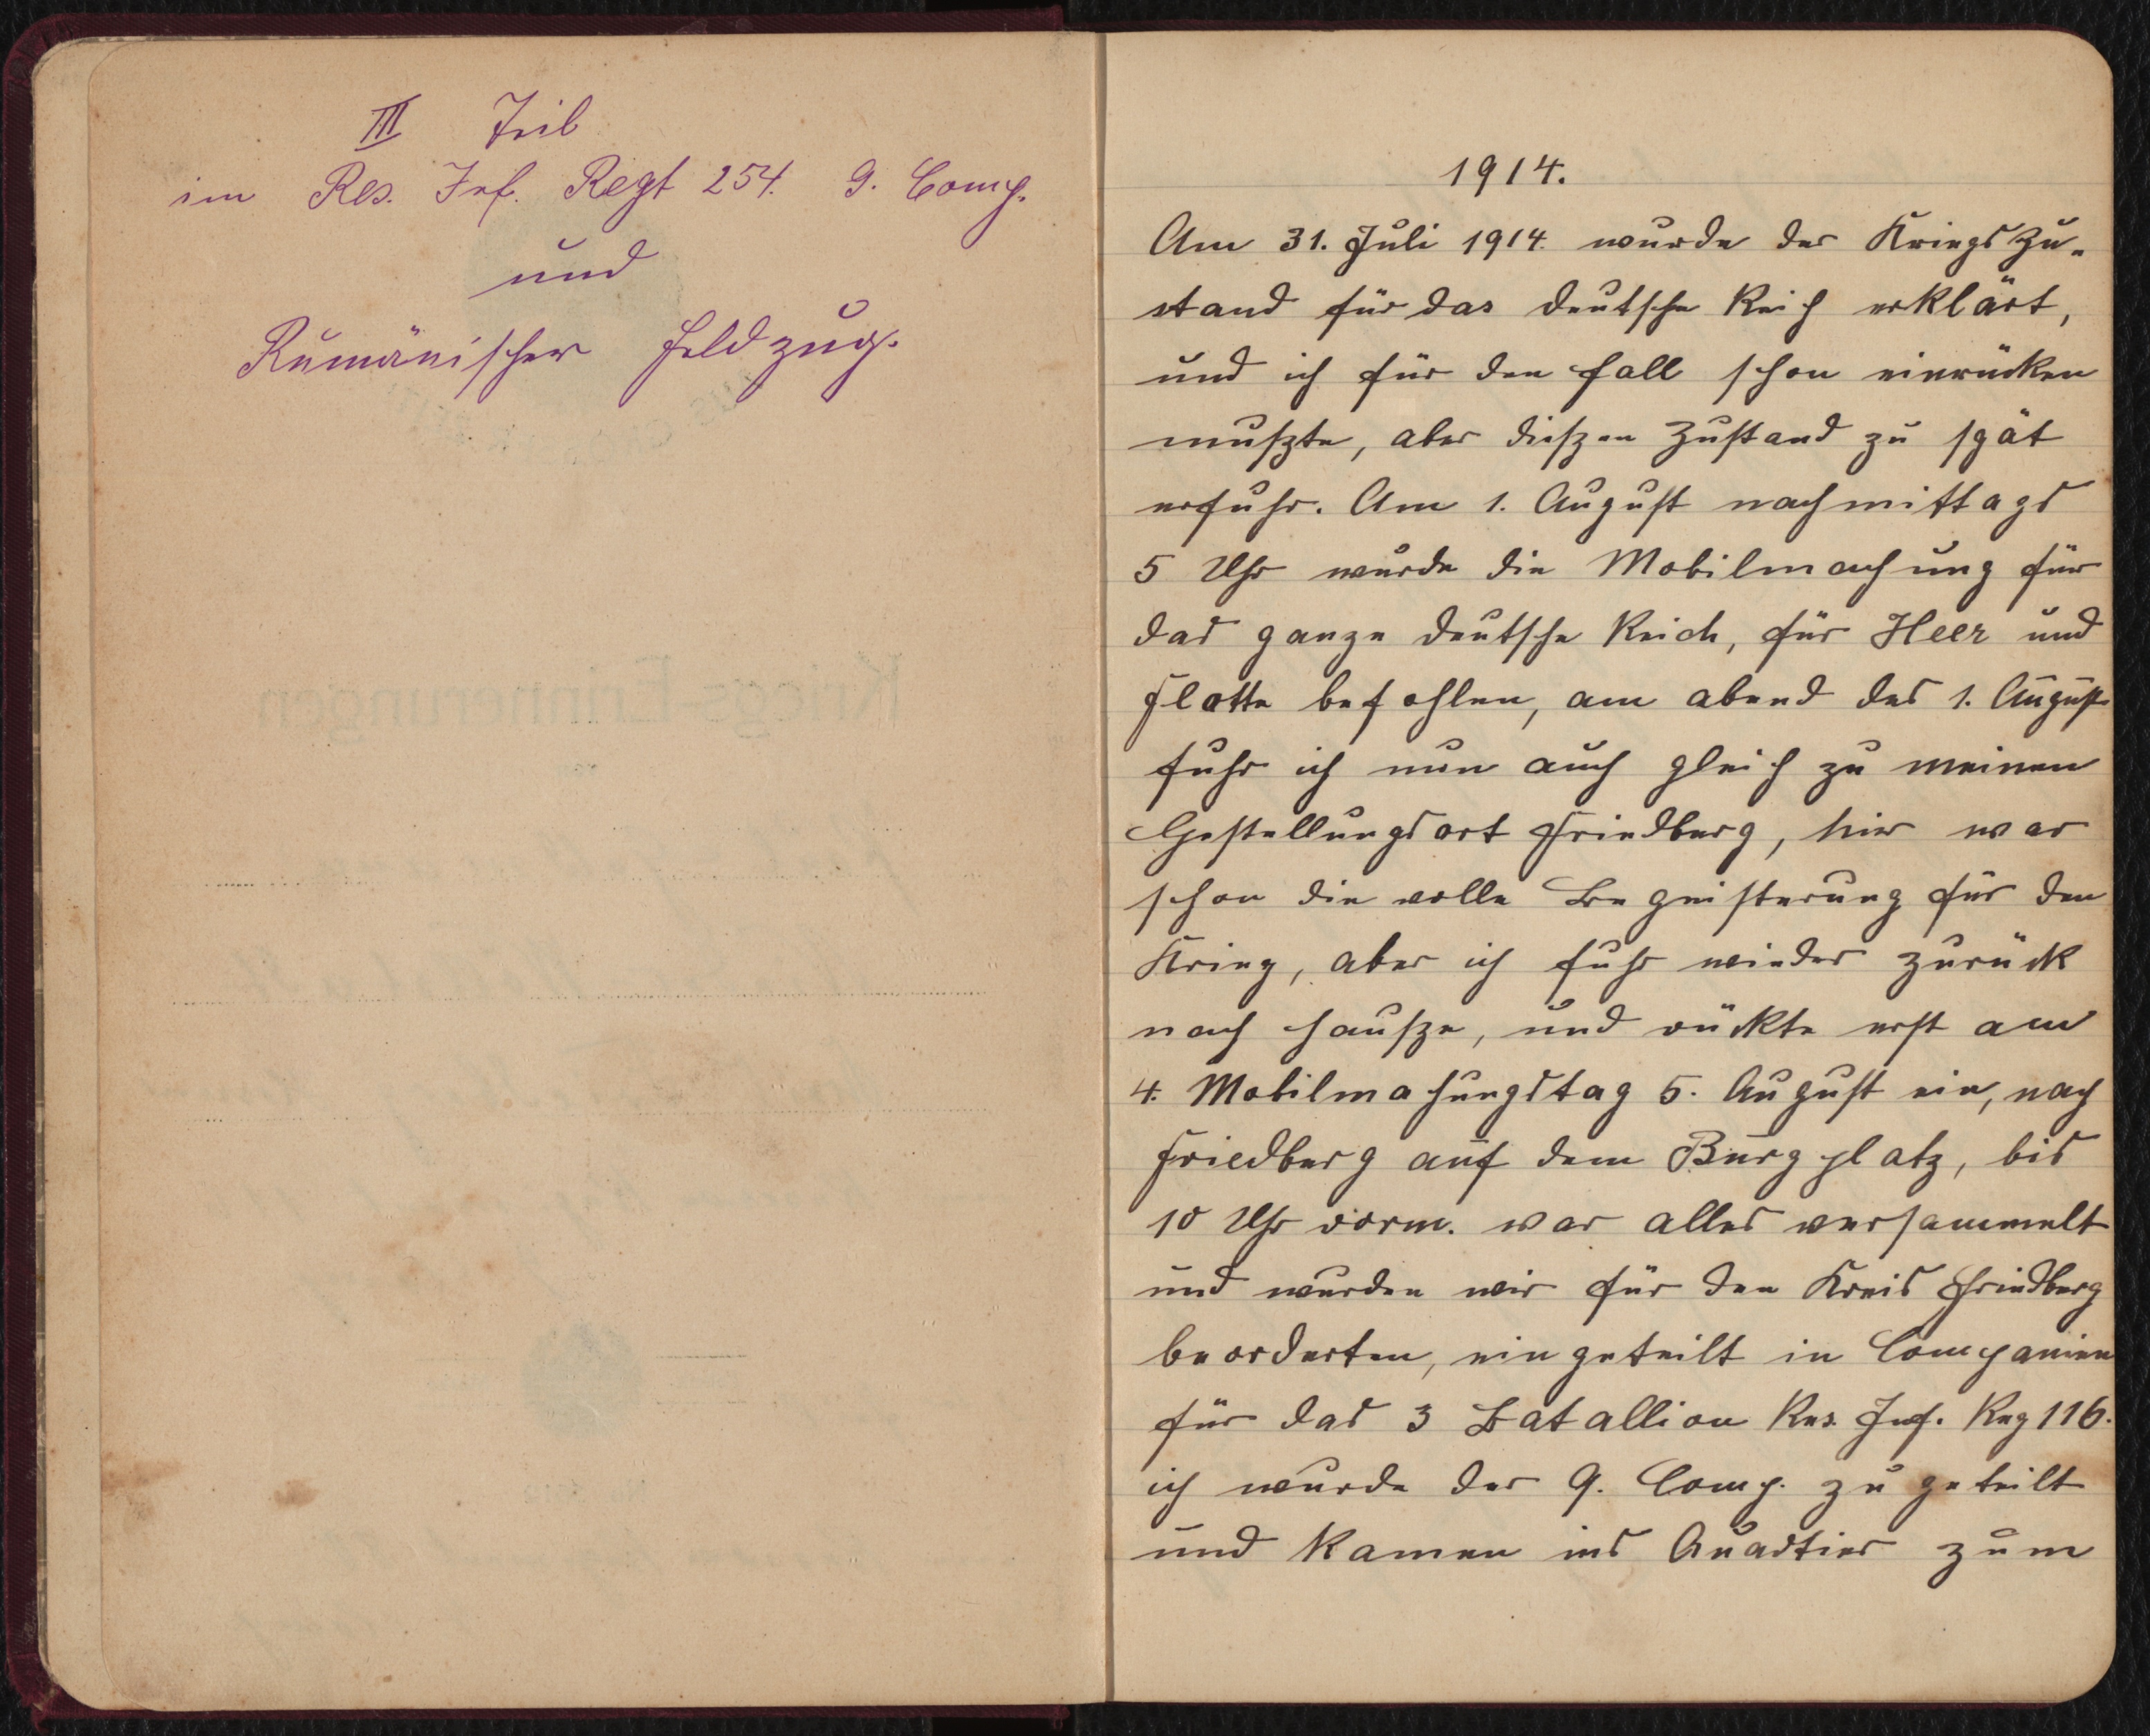 III Teil
im Res. Inf. Regt 254. 9. Comp.
und
Rumänischer Feldzug.
1914.
Am 31. Juli 1914. wurde der Kriegszu-
stand für das deutsche Reich erklärt,
und ich für den Fall schon einrücken
muszte, aber dieszen Zustand zu spät
erfuhr. Am 1. August nachmittags
5 Uhr wurde die Mobilmachung für
das ganze deutsche Reich, für Heer und
Flotte befohlen, am abend des 1. August
fuhr ich nun auch gleich zu meinen
Gestellungsort Friedberg, hier war
schon die volle Begeisterung für den
Krieg, aber ich fuhr wieder zurück
nach hausze, und rückte erst am
4. Mobilmachungstag 5. August ein, nach
Friedberg auf dem Burgplatz, bis
10 Uhr vorm. war alles versammelt
und wurden wir für den Kreis Friedberg
beorderten, eingeteilt in Companien
für das 3 Batallion Res. Inf. Reg 116.
ich wurde der 9. Comp. zu geteilt
und kamen ins Quadtier zum